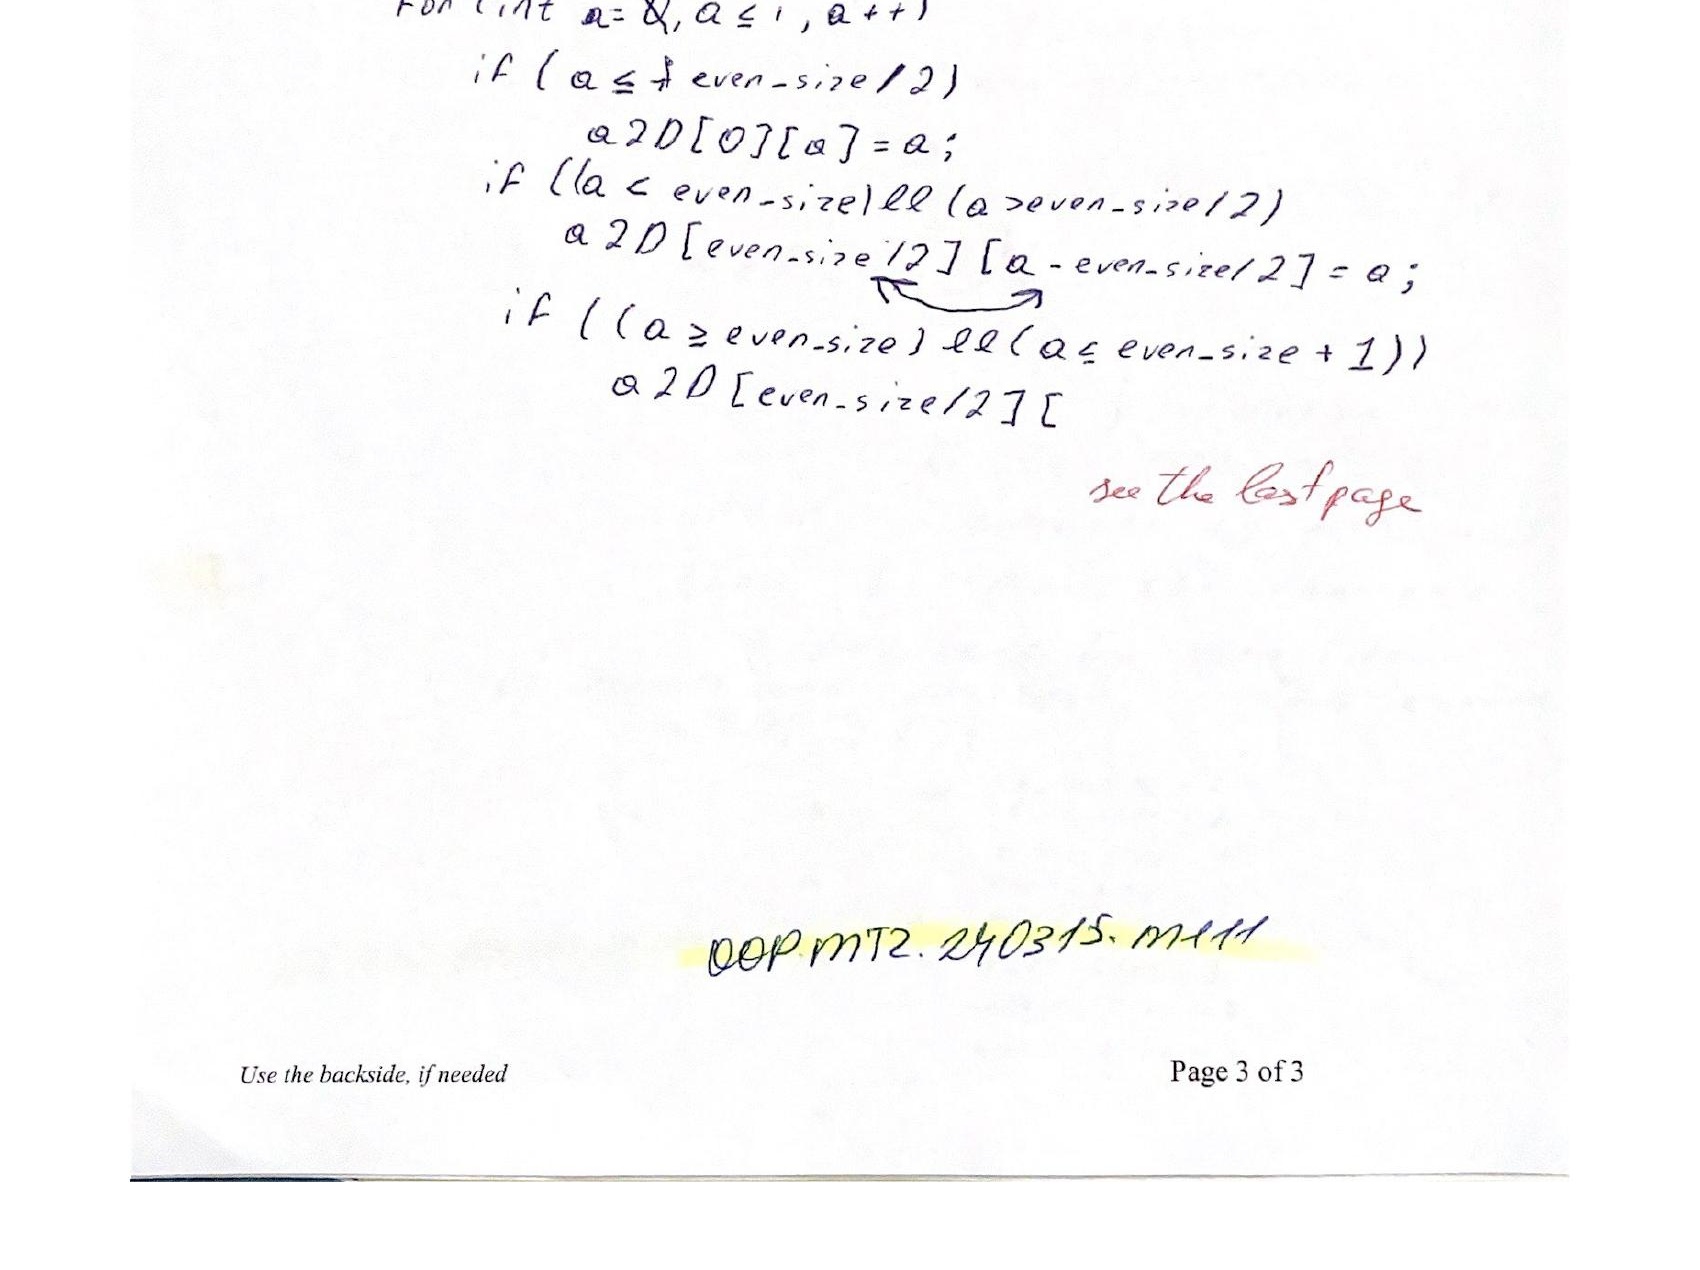 for (int a= 0, a ≤ i, a++)
if ( a ≤ even_size/2)
a2D[0][a] = a;
if ((a < even_size) && (a >even_size/2)
a2D[even_size/2] [a - even_size/2] = a;
if ((a ≥ even_size) && (a ≤ even_size + 1))
a2D[even_size/2] [
see the last page
OOP.MT2.240315.M111
Use the backside, if needed
Page 3 of 3